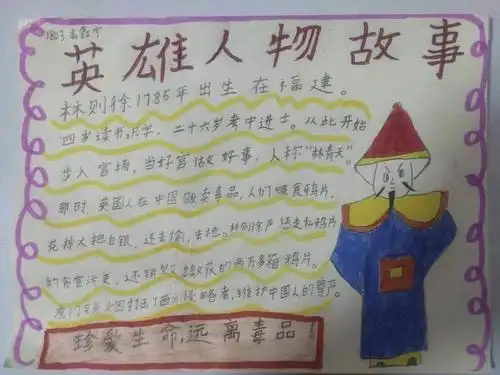 1803
英雄人物故事
林则徐1785年出生在福建。
四岁读书识字，二十六岁考中进士。从此开始
步入官场，当好官做好事，人称“林青天”。
那时，英国人在中国贩卖毒品，人们吸食鸦片，
花掉大把白银，还去偷，去抢。林则徐严惩走私鸦片
的贪官污吏，还销毁缴获的两万多箱鸦片。
侵略者，维护中国人的尊严。
珍爱生命，远离毒品！